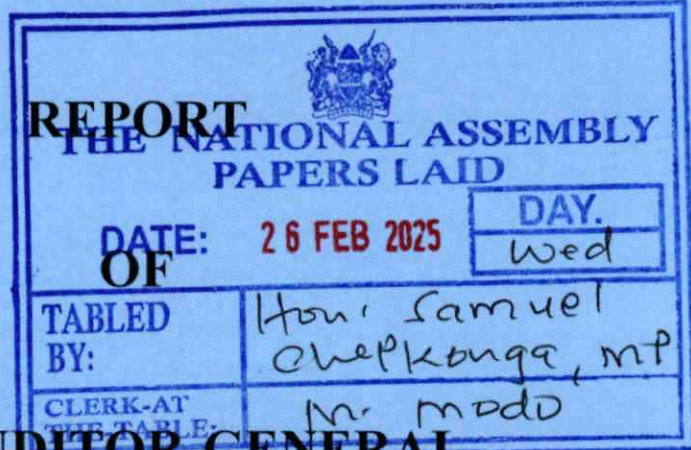 REPORT
THE NATIONAL ASSEMBLY
PAPERS LAID
DATE: 26 FEB 2025
DAY.
Wed
OF
TABLED BY:
Hon. Samuel Chepkonga, MP
CLERK-AT THE-TABLE:
Mr. Modo
AUDITOR-GENERAL